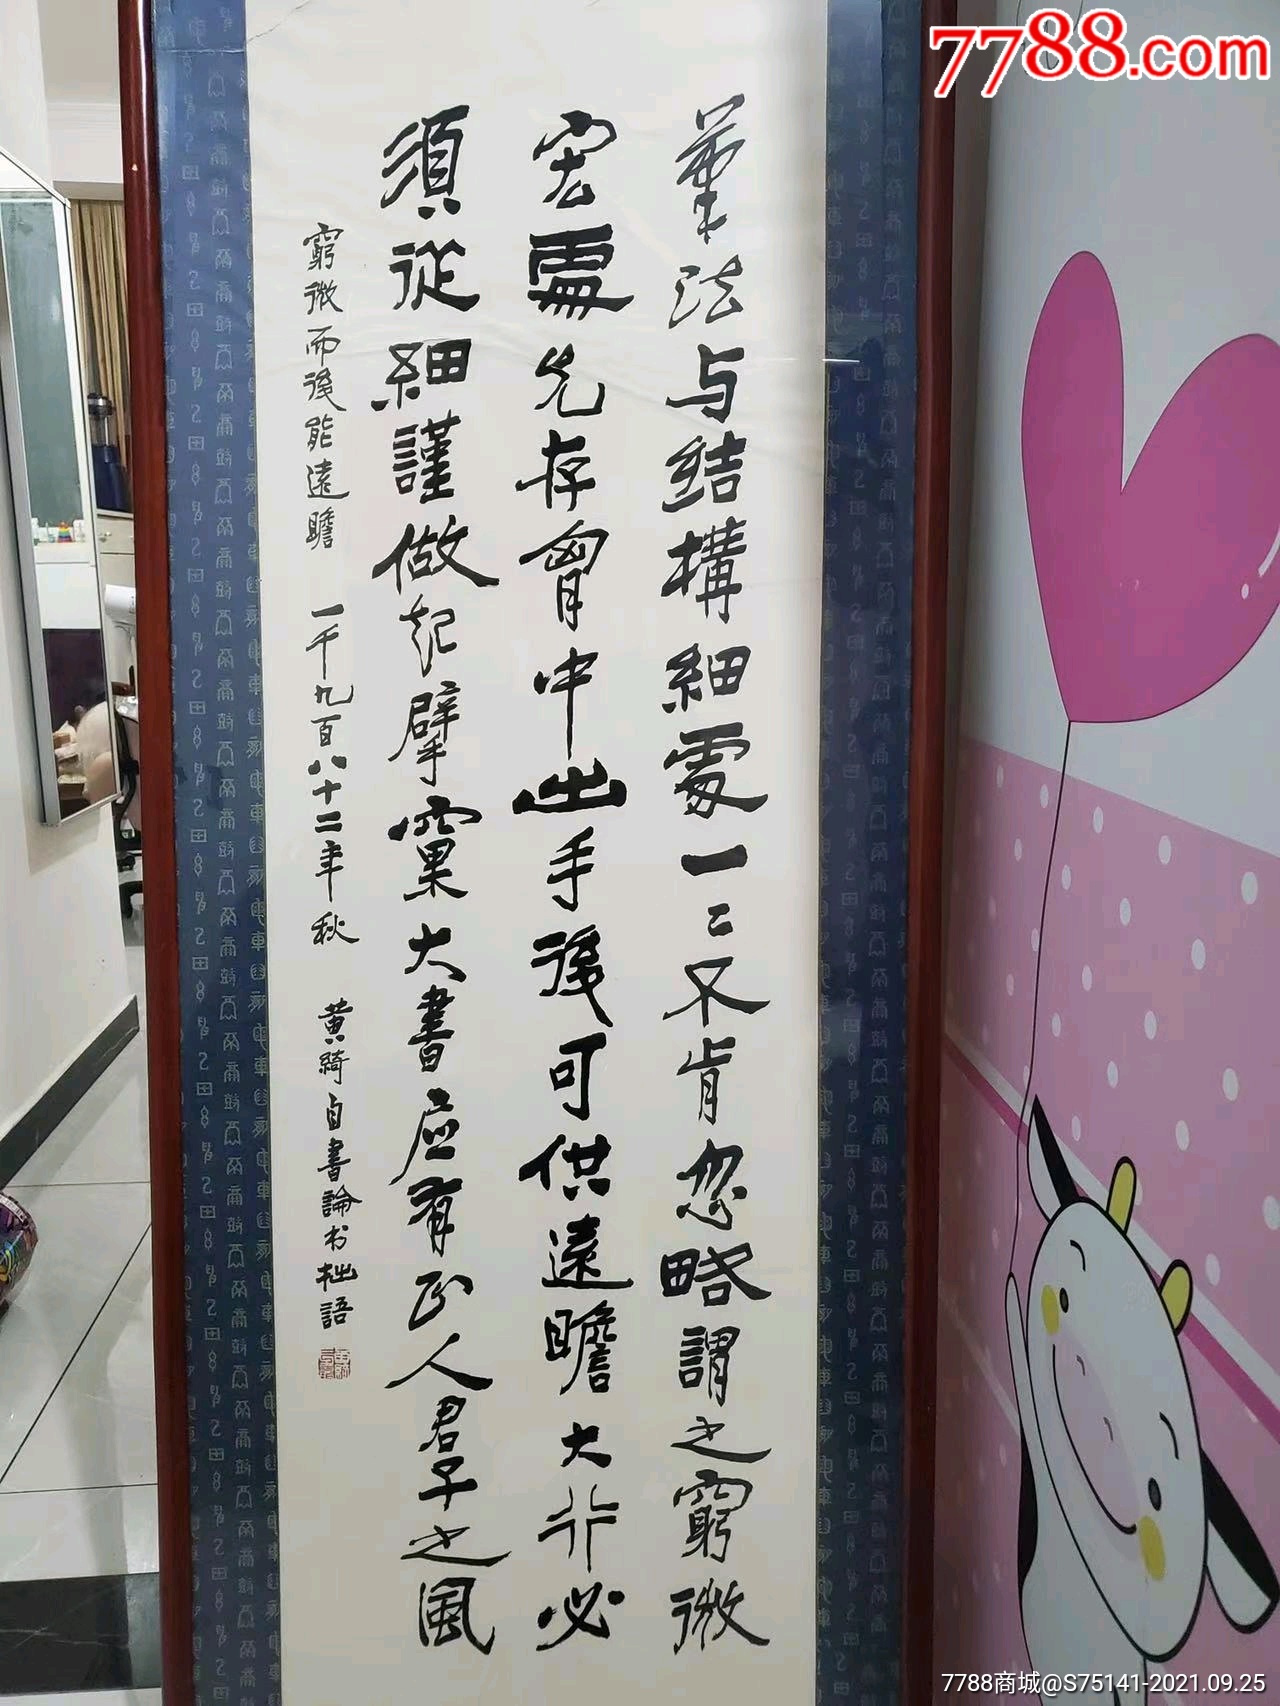 7788.com
筆法与結構細處一二不肯忽略謂之窮微
宏處先存胷中出手後可供遠瞻大非必
須從細謹做起擘窠大書应有正人君子之風
窮微而後能遠瞻 一千九百八十二年秋 黄綺自書論书拙語
7788商城@S75141-2021.09.25